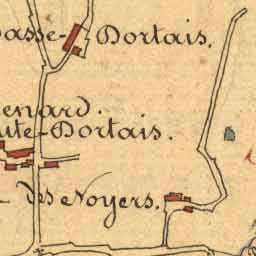 asse-Portais.
enard.
ute-Portais.
des Noyers.